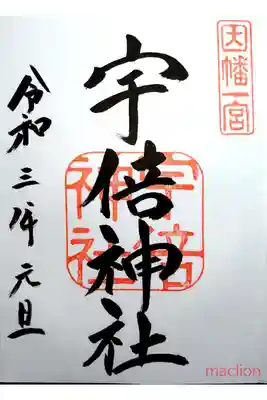 因幡一宮
宇倍神社
宇倍神社
令和三年元旦
maclion